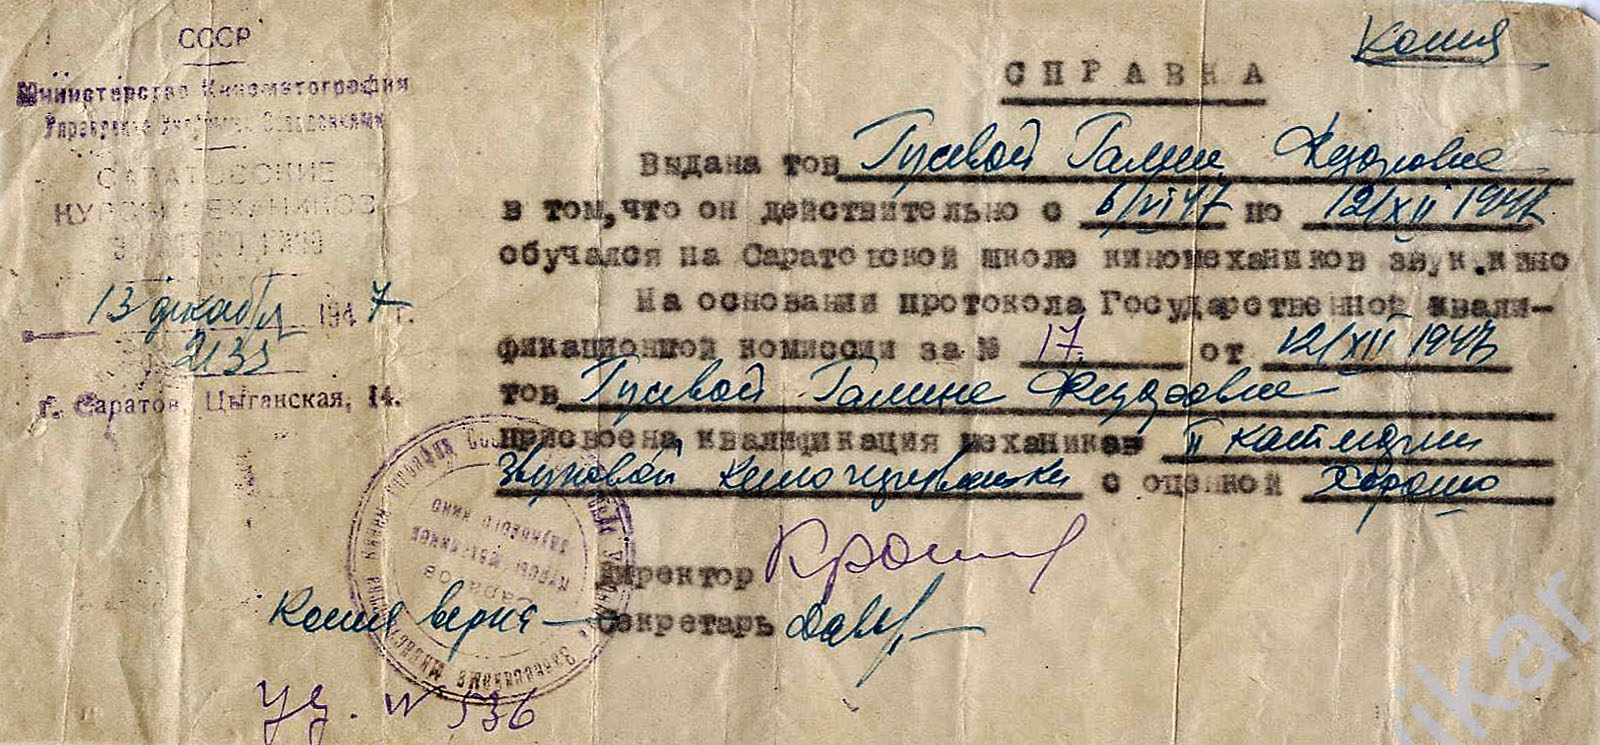 СССР
Министерство Кинематографии
Управление Учебными Заведениями
САРАТОВСКИЕ
КУРСЫ МЕХАНИКОВ
ЗВУКОВОГО КИНО
13 декабря 1947 г.
2133
г. Саратов, Цыганская, 14.
Копия
СПРАВКА
Выдана тов Гусевой Галине Федоровне
в том, что он действительно с 6/VI 47 по 12/XII 1947
обучался на Саратовской школе киномехаников звук. кино
На основании протокола Государственной квали-
фикационной комиссии за № 17 от 12/XII 1947
тов Гусевой Галине Федоровне
присвоена квалификация механиков II категории
Звуковой киноустановки с оценкой Хорошо
Директор
Секретарь
Копия верна
уд. N 536
Саратов
курсы механиков
звукового кино
ikar